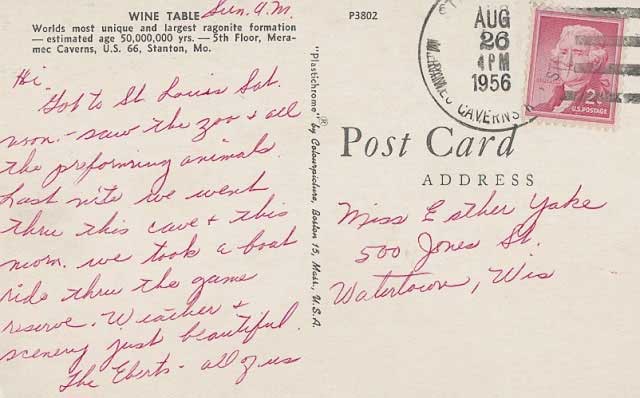 WINE TABLE Sun. A.M.
Worlds most unique and largest ragonite formation
— estimated age 50,000,000 yrs. — 5th Floor, Mera-
mec Caverns, U.S. 66, Stanton, Mo.
Hi -
Got to St Louis Sat.
noon. - saw the zoo & all
the preforming animals.
Last nite we went
thru this cave & this
morn. we took a boat
ride thru the game
reserve. Weather &
scenery just beautiful.
The Eberts - all of us
"Plastichrome"® by Colourpicture, Boston 15, Mass., U.S.A.
P3802
AUG
26
4 PM
1956
CAVERNS
2¢
U.S. POSTAGE
Post Card
ADDRESS
Miss Esther Yake
500 Jones St.
Watertown, Wis